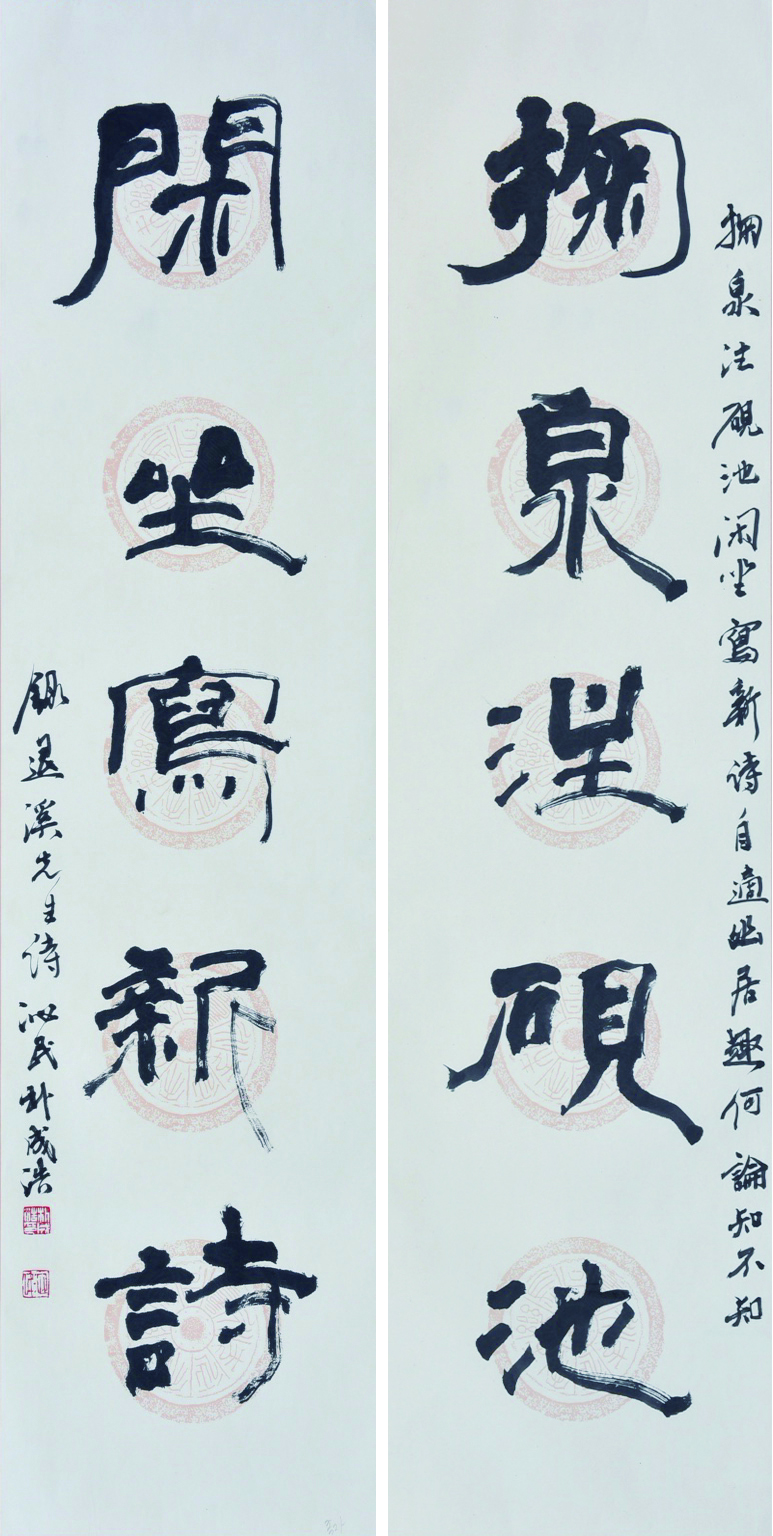 掬泉注硯池閑坐寫新詩自適幽居趣何論知不知
掬泉注硯池
閑坐寫新詩
錄退溪先生詩 民朴成浩